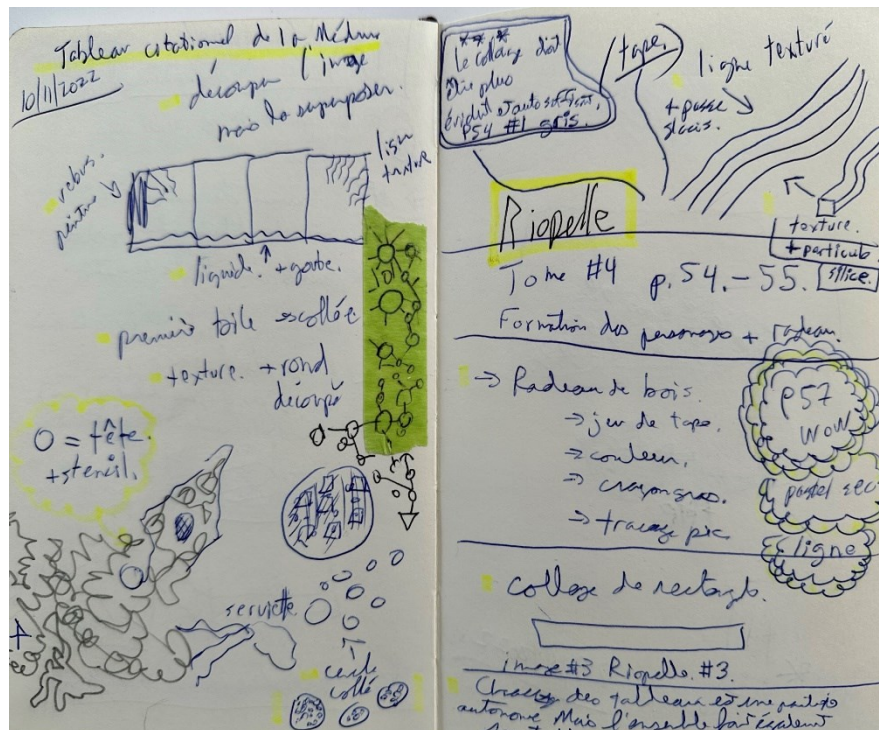 Tableau citationnel de la Méduse
10/11/2022
découper l'image
mais la superposer.
rebus.
peinture
ligne
texture
liquide. + goutte.
première toile collée
texture. + rond
découpé
O = tête.
+ stencil.
serviette
cercle
collé
***
Le collage doit
être plus
évident et autosuffisant,
P54 #1 gris.
tape.
ligne texturé
+ passe
glacis.
texture.
+ particule.
silice.
Riopelle
Tome #4 p. 54. - 55.
Formation des personages + radeau.
→ Radeau de bois.
→ jeu de tape.
→ couleur.
→ crayon gras.
→ traçage
P57
WOW
pastel sec
ligne
collage de rectangle.
image #3 Riopelle. #3.
Chacun des tableau est une partie
autonome Mais l'ensemble fait également